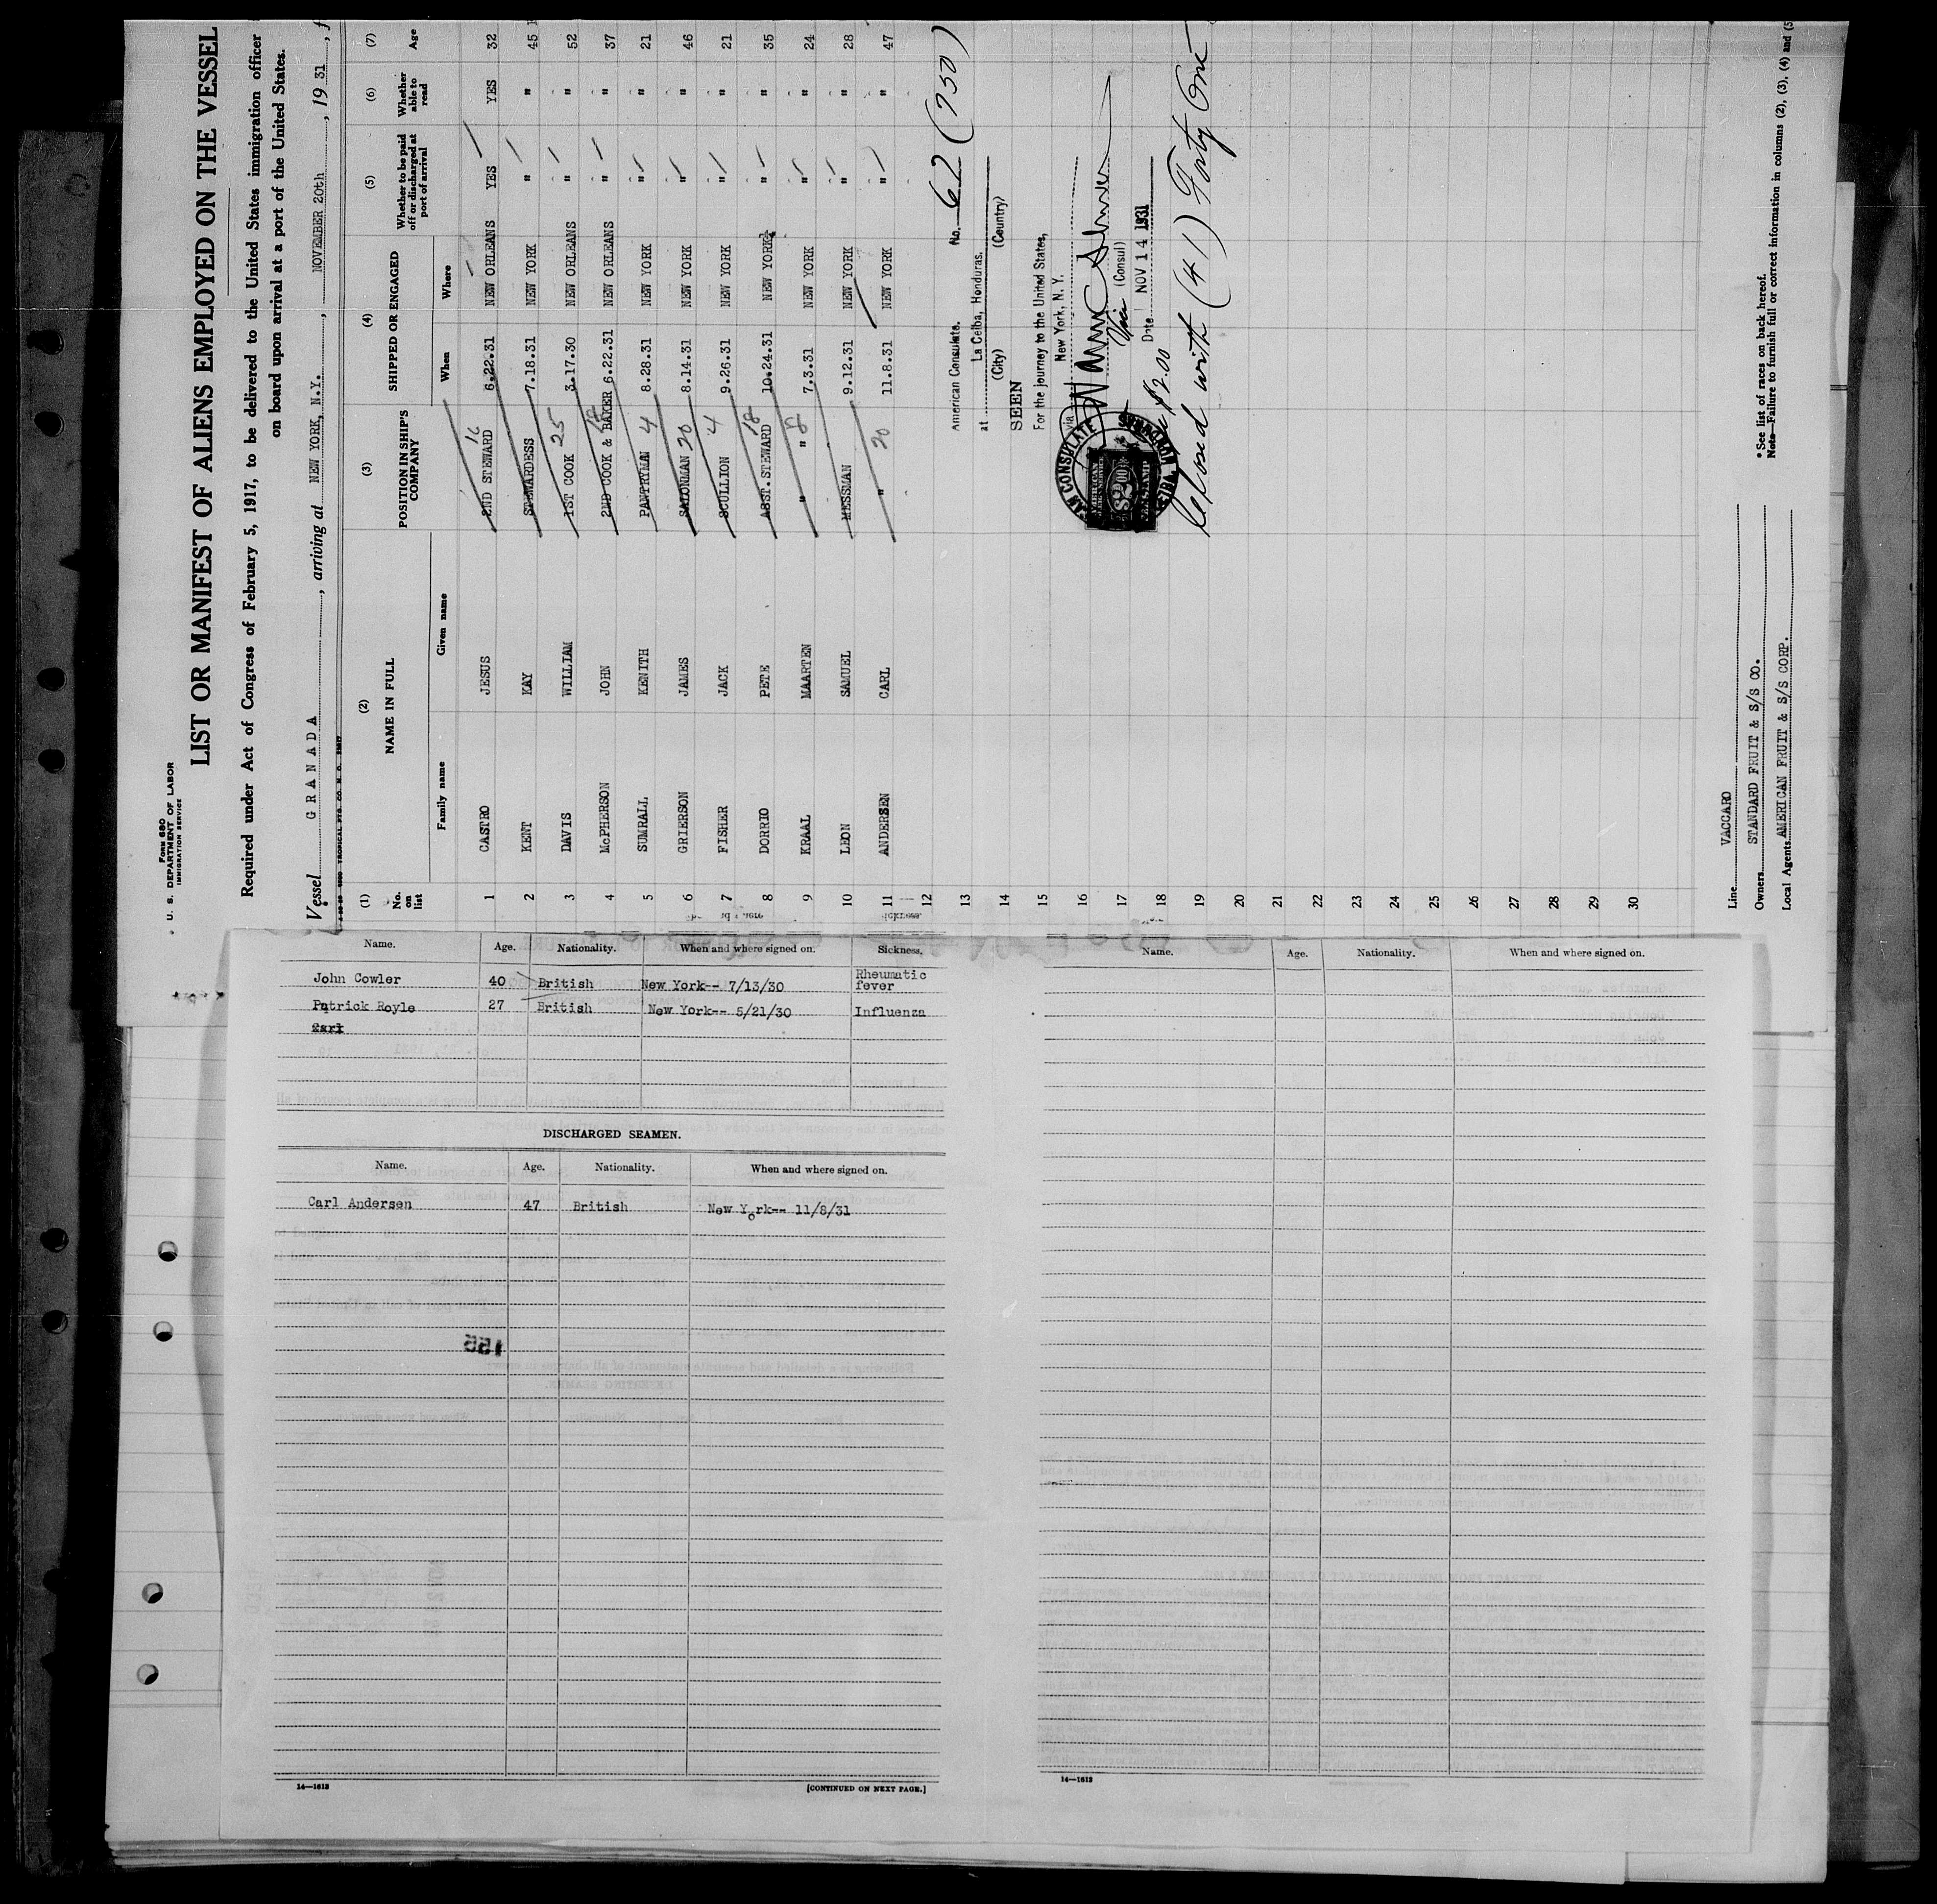 Form 680
U. S. DEPARTMENT OF LABOR
IMMIGRATION SERVICE
LIST OR MANIFEST OF ALIENS EMPLOYED ON THE VESSEL
Required under Act of Congress of February 5, 1917, to be delivered to the United States immigration officer
on board upon arrival at a port of the United States.
Vessel GRANADA, arriving at NEW YORK, N.Y., NOVEMBER 20th, 1931, f
(1) (2) (3) (4) (5) (6) (7)
No. on list NAME IN FULL POSITION IN SHIP'S COMPANY SHIPPED OR ENGAGED Whether to be paid off or discharged at port of arrival Whether able to read Age
Family name Given name When Where
1 CASTRO JESUS 2ND STEWARD 16 6.22.31 NEW ORLEANS YES YES 32
2 KENT KAY STEWARDESS 7.18.31 NEW YORK " " 45
3 DAVIS WILLIAM 1ST COOK 25 3.17.30 NEW ORLEANS " " 52
4 McPHERSON JOHN 2ND COOK & BAKER 6.22.31 NEW ORLEANS " " 37
5 SUMRALL KENITH PANTRYMAN 4 8.28.31 NEW YORK " " 21
6 GRIERSON JAMES SALONMAN 20 8.14.31 NEW YORK " " 46
7 FISHER JACK SCULLION 4 9.26.31 NEW YORK " " 21
8 DORRIO PETE ASST. STEWARD 18 10.24.31 NEW YORK " " 35
9 KRAAL MAARTEN " " 8 7.3.31 NEW YORK " " 24
10 LEON SAMUEL MESSMAN 9.12.31 NEW YORK " " 28
11 ANDERSEN CARL " 20 11.8.31 NEW YORK " " 47
12
13
14
15
16
17
18
19
20
21
22
23
24
25
26
27
28
29
30
American Consulate. No. 62 (750)
at La Ceiba, Honduras.
(City) (Country)
SEEN
For the journey to the United States,
via New York, N. Y.
Vice (Consul)
Date NOV 14 1931
$2.00
(41) Forty One
Line VACCARO
Owners STANDARD FRUIT & S/S CO.
Local Agents AMERICAN FRUIT & S/S CORP.
* See list of races on back hereof.
Note—Failure to furnish full or correct information in columns (2), (3), (4) and (5
Name. Age. Nationality. When and where signed on. Sickness.
John Cowler 40 British New York-- 7/13/30 Rheumatic fever
Patrick Royle 27 British New York-- 5/21/30 Influenza
DISCHARGED SEAMEN.
Name. Age. Nationality. When and where signed on.
Carl Andersen 47 British New York-- 11/8/31
155
14—1612 [CONTINUED ON NEXT PAGE.]
Name. Age. Nationality. When and where signed on.
14—1612